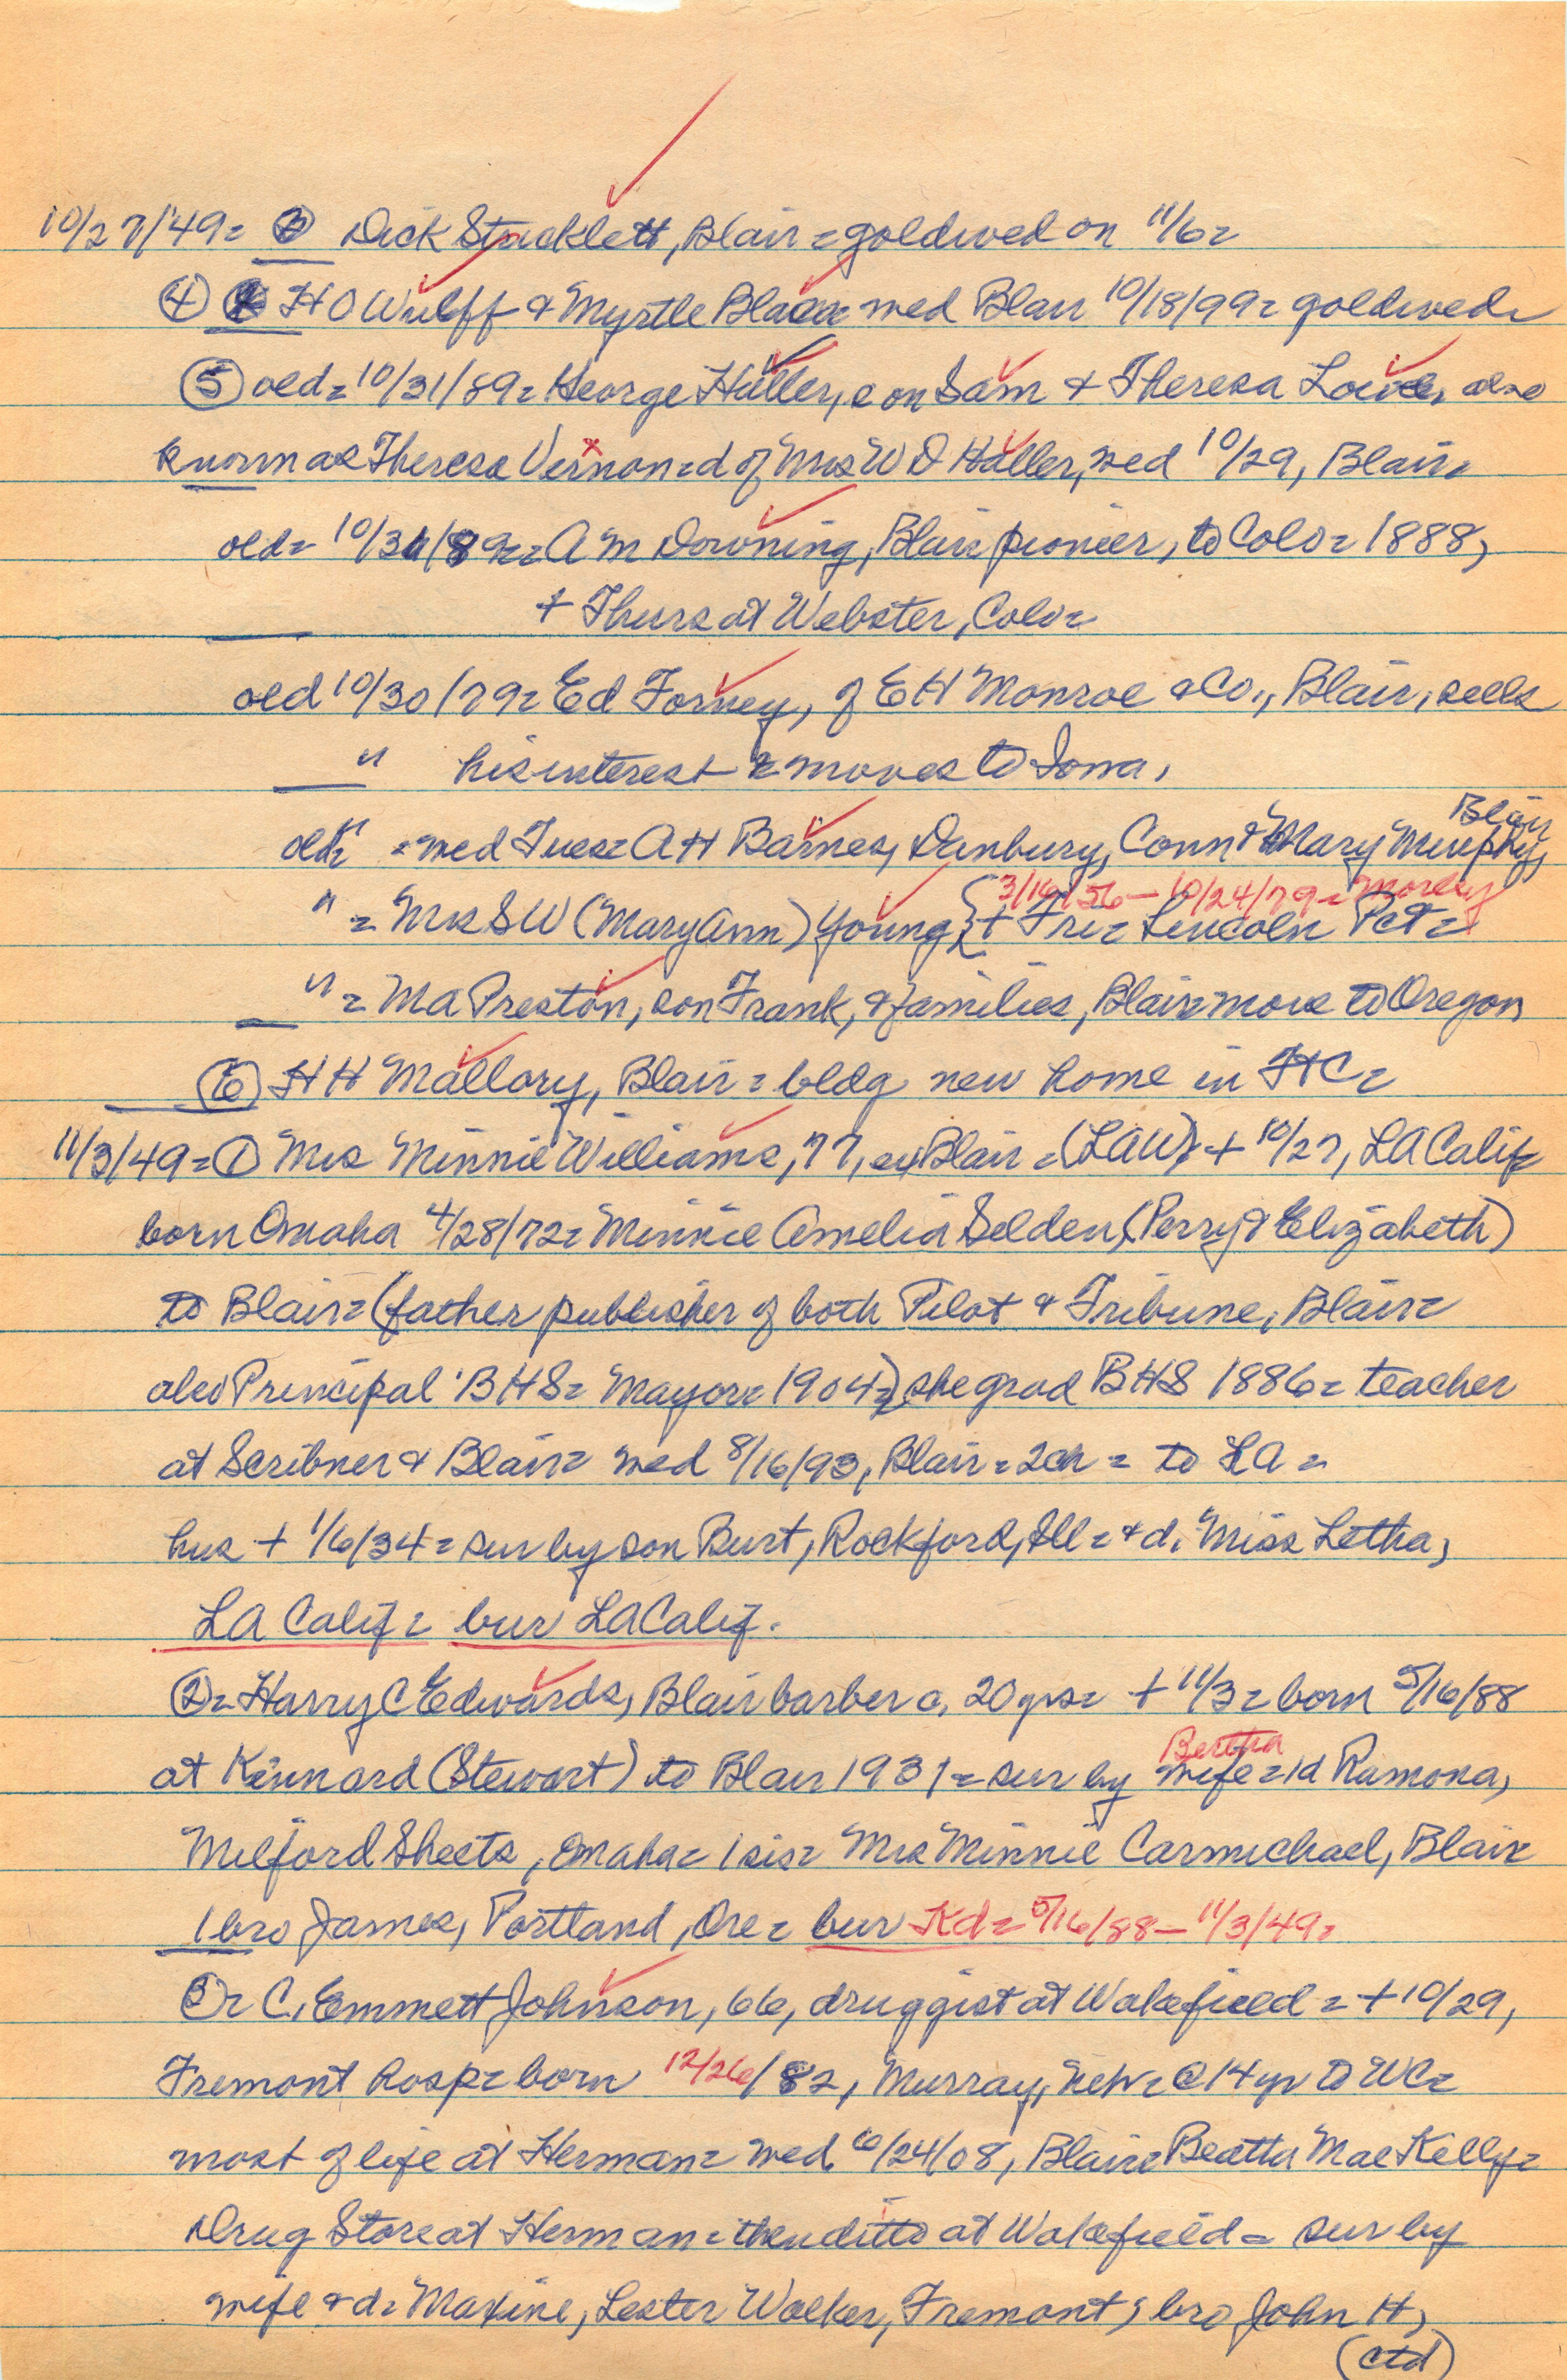 10/27/'49= Dick Stacklett, Blair = goldwed on 11/6=
④ H O Wulff & Myrtle Black= wed Blair 10/18/99= goldwed=
⑤ old= 10/31/89= George Haller, son Sam & Theresa Lowe, also
known as Theresa Vernon=d of Mrs W D Haller, wed 10/29, Blair=
old= 10/31/89== A M Downing, Blair pioneer, to Colo= 1888,
+ Thurs at Webster, Colo=
old 10/30/79= Ed Forney, of E H Monroe & Co., Blair, sells
" his interest & moves to Iowa,
Blair
old= " = wed Tues= A H Barnes, Danbury, Conn & Mary Murphy,
3/16/56 — 10/24/79=
" = Mrs S W (Mary Ann) Young, + Fri= Lincoln Pct=
" = M A Preston, son Frank, & families, Blair= move to Oregon
⑥ H H Mallory, Blair= bldg new home in
11/3/49= ① Mrs Minnie Williams, 77, ex Blair = (LAW) + 10/27, LA Calif
born Omaha 4/28/72= Minnie Amelia Selden, (Perry & Elizabeth)
to Blair= (father publisher of both Pilot & Tribune, Blair=
also Principal BHS= Mayor= 1904=) she grad BHS 1886= teacher
at Scribner & Blair= wed 8/16/93, Blair = 2ch = to LA =
hus + 1/6/34 = sur by son Burt, Rockford, Ill= & d. Miss Letha,
LA Calif= bur LA Calif.
②= Harry C Edwards, Blair barber c. 20 yrs= + 11/3= born 5/16/88
Bertha
at Kennard (Stewart) to Blair 1931= sur by wife = 1d Ramona,
Milford Sheets, Omaha= 1 sis= Mrs Minnie Carmichael, Blair
1 bro James, Portland, Ore= bur Kd= 5/16/88— 11/3/49=
③= C. Emmett Johnson, 66, druggist at Wakefield = + 10/29,
Fremont hosp= born 12/26/82, Murray, Neb= @ 14 yr to WC=
most of life at Herman= wed 6/24/08, Blair= Beatta Mae Kelly=
Drug Store at Herman= then ditto at Wakefield= sur by
wife & d= Maxine, Lester Walker, Fremont; bro John H,
(ctd)